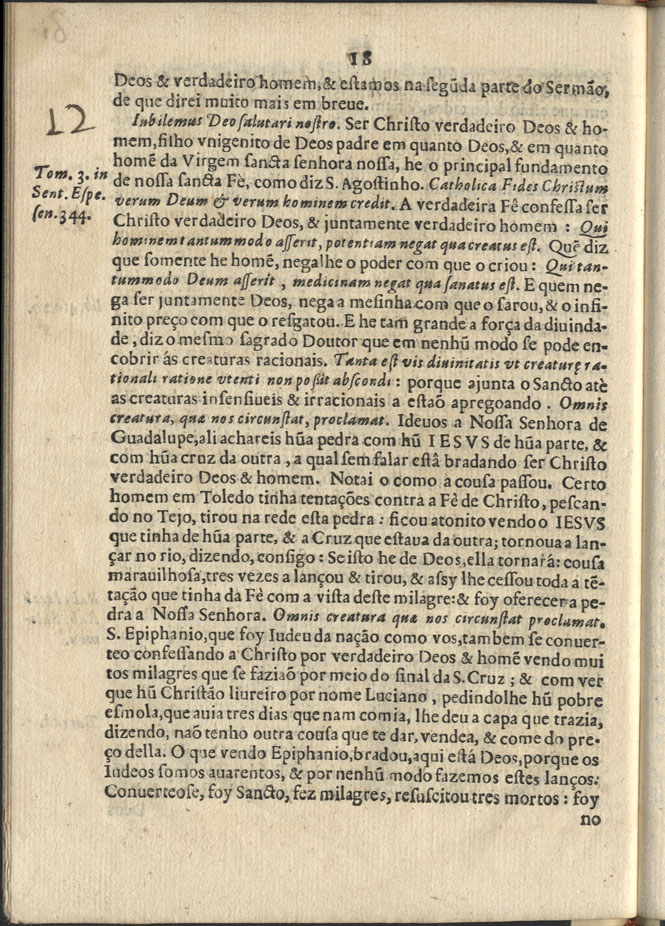 18
Deos & verdadeiro homem, & estamos na segũda parte do Sermão,
de que direi muito mais em breue.
12
Iubilemus Deo salutari nostro. Ser Christo verdadeiro Deos & ho-
mem, filho vnigenito de Deos padre em quanto Deos, & em quanto
homẽ da Virgem sancta senhora nossa, he o principal fundamento
Tom. 3. in
Sent. Espe.
sen. 344.
de nossa sancta Fè, como diz S. Agostinho. Catholica Fides Christum
verum Deum & verum hominem credit. A verdadeira Fê confessa ser
Christo verdadeiro Deos, & juntamente verdadeiro homem : Qui
hominem tantummodo asserit, potentiam negat qua creatus est. Quẽ diz
que somente he homẽ, negalhe o poder com que o criou : Qui tan-
tummodo Deum asserit , medicinam negat qua sanatus est. E quem ne-
ga ser juntamente Deos, nega a mesinha com que o sarou, & o infi-
nito preço com que o resgatou. E he tam grande a força da diuinda-
de , diz o mesmo sagrado Doutor que em nenhũ modo se pode en-
cobrir ás creaturas racionais. Tanta est vis diuinitatis vt creaturę ra-
tionali ratione vtenti non possit abscondi : porque ajunta o Sancto atè
as creaturas insensiueis & irracionais a estaõ apregoando . Omnis
creatura, quæ nos circunstat, proclamat. Ideuos a Nossa Senhora de
Guadalupe, ali achareis hũa pedra com hũ IESVS de hũa parte, &
com hũa cruz da outra , a qual sem falar estâ bradando ser Christo
verdadeiro Deos & homem. Notai o como a cousa passou. Certo
homem em Toledo tinha tentações contra a Fè de Christo, pescan-
do no Tejo, tirou na rede esta pedra : ficou atonito vendo o IESVS
que tinha de hũa parte, & a Cruz que estaua da outra; tornou a lan-
çar no rio, dizendo, consigo : Se isto he de Deos, ella tornará: cousa
marauilhosa, tres vezes a lançou & tirou, & assy lhe cessou toda a tẽ-
tação que tinha da Fè com a vista deste milagre: & foy oferecer a pe-
dra a Nossa Senhora. Omnis creatura quæ nos circunstat proclamat.
S. Epiphanio, que foy Iudeu da nação como vos, tambem se conuer-
teo confessando a Christo por verdadeiro Deos & homẽ vendo mui
tos milagres que se faziaõ por meio do sinal da S. Cruz ; & com ver
que hũ Christão liureiro por nome Luciano , pedindolhe hũ pobre
esmola, que auia tres dias que nam comia, lhe deu a capa que trazia,
dizendo, naõ tenho outra cousa que te dar, vendea, & come do pre-
ço della. O que vendo Epiphanio, bradou, aqui está Deos, porque os
Iudeos somos auarentos, & por nenhũ modo fazemos estes lanços.
Conuerteose, foy Sancto, fez milagres, resuscitou tres mortos : foy
no